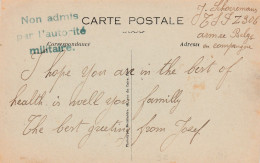 Non admis
par l'autorité
militaire.
CARTE POSTALE
Correspondance
Adresse
TSF Z306
armee Belge
en campagne
I hope you are in the best of
health is well your familly
The best greeting from Josef